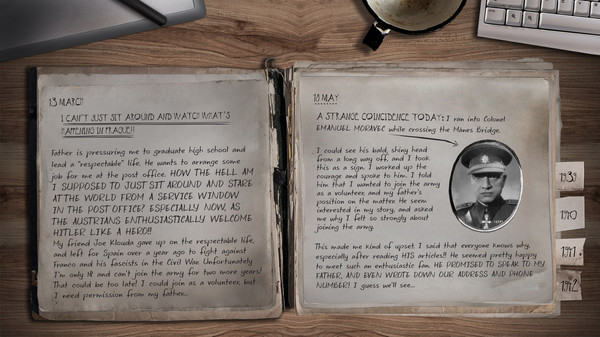 13 MARCH
I CAN'T JUST SIT AROUND AND WATCH WHAT'S
HAPPENING IN PRAGUE!!
Father is pressuring me to graduate high school and
lead a "respectable" life. He wants to arrange some
job for me at the post office. HOW THE HELL AM
I SUPPOSED TO JUST SIT AROUND AND STARE
AT THE WORLD FROM A SERVICE WINDOW
IN THE POST OFFICE? ESPECIALLY NOW, AS
THE AUSTRIANS ENTHUSIASTICALLY WELCOME
HITLER LIKE A HERO!!
My friend Joe Klouda gave up on the respectable life,
and left for Spain over a year ago to fight against
Franco and his fascists in the Civil War. Unfortunately
I'm only 18 and can't join the army for two more years!
That could be too late! I could join as a volunteer, but
I need permission from my father...
18 MAY
A STRANGE COINCIDENCE TODAY: I ran into Colonel
EMANUEL MORAVEC while crossing the Mánes Bridge.
I could see his bald, shiny head
from a long way off, and I took
this as a sign. I worked up the
courage and spoke to him. I told
him that I wanted to join the army
as a volunteer, and my father's
position on the matter. He seem
interested in my story, and asked
me why I felt so strongly about
joining the army.
This made me kind of upset. I said that everyone knows why,
especially after reading HIS articles!! He seemed pretty happy
to meet such an enthusiastic fan. HE PROMISED TO SPEAK TO MY
FATHER, AND EVEN WROTE DOWN OUR ADDRESS AND PHONE
NUMBER! I guess we'll see...
1939
1940
1941
1942